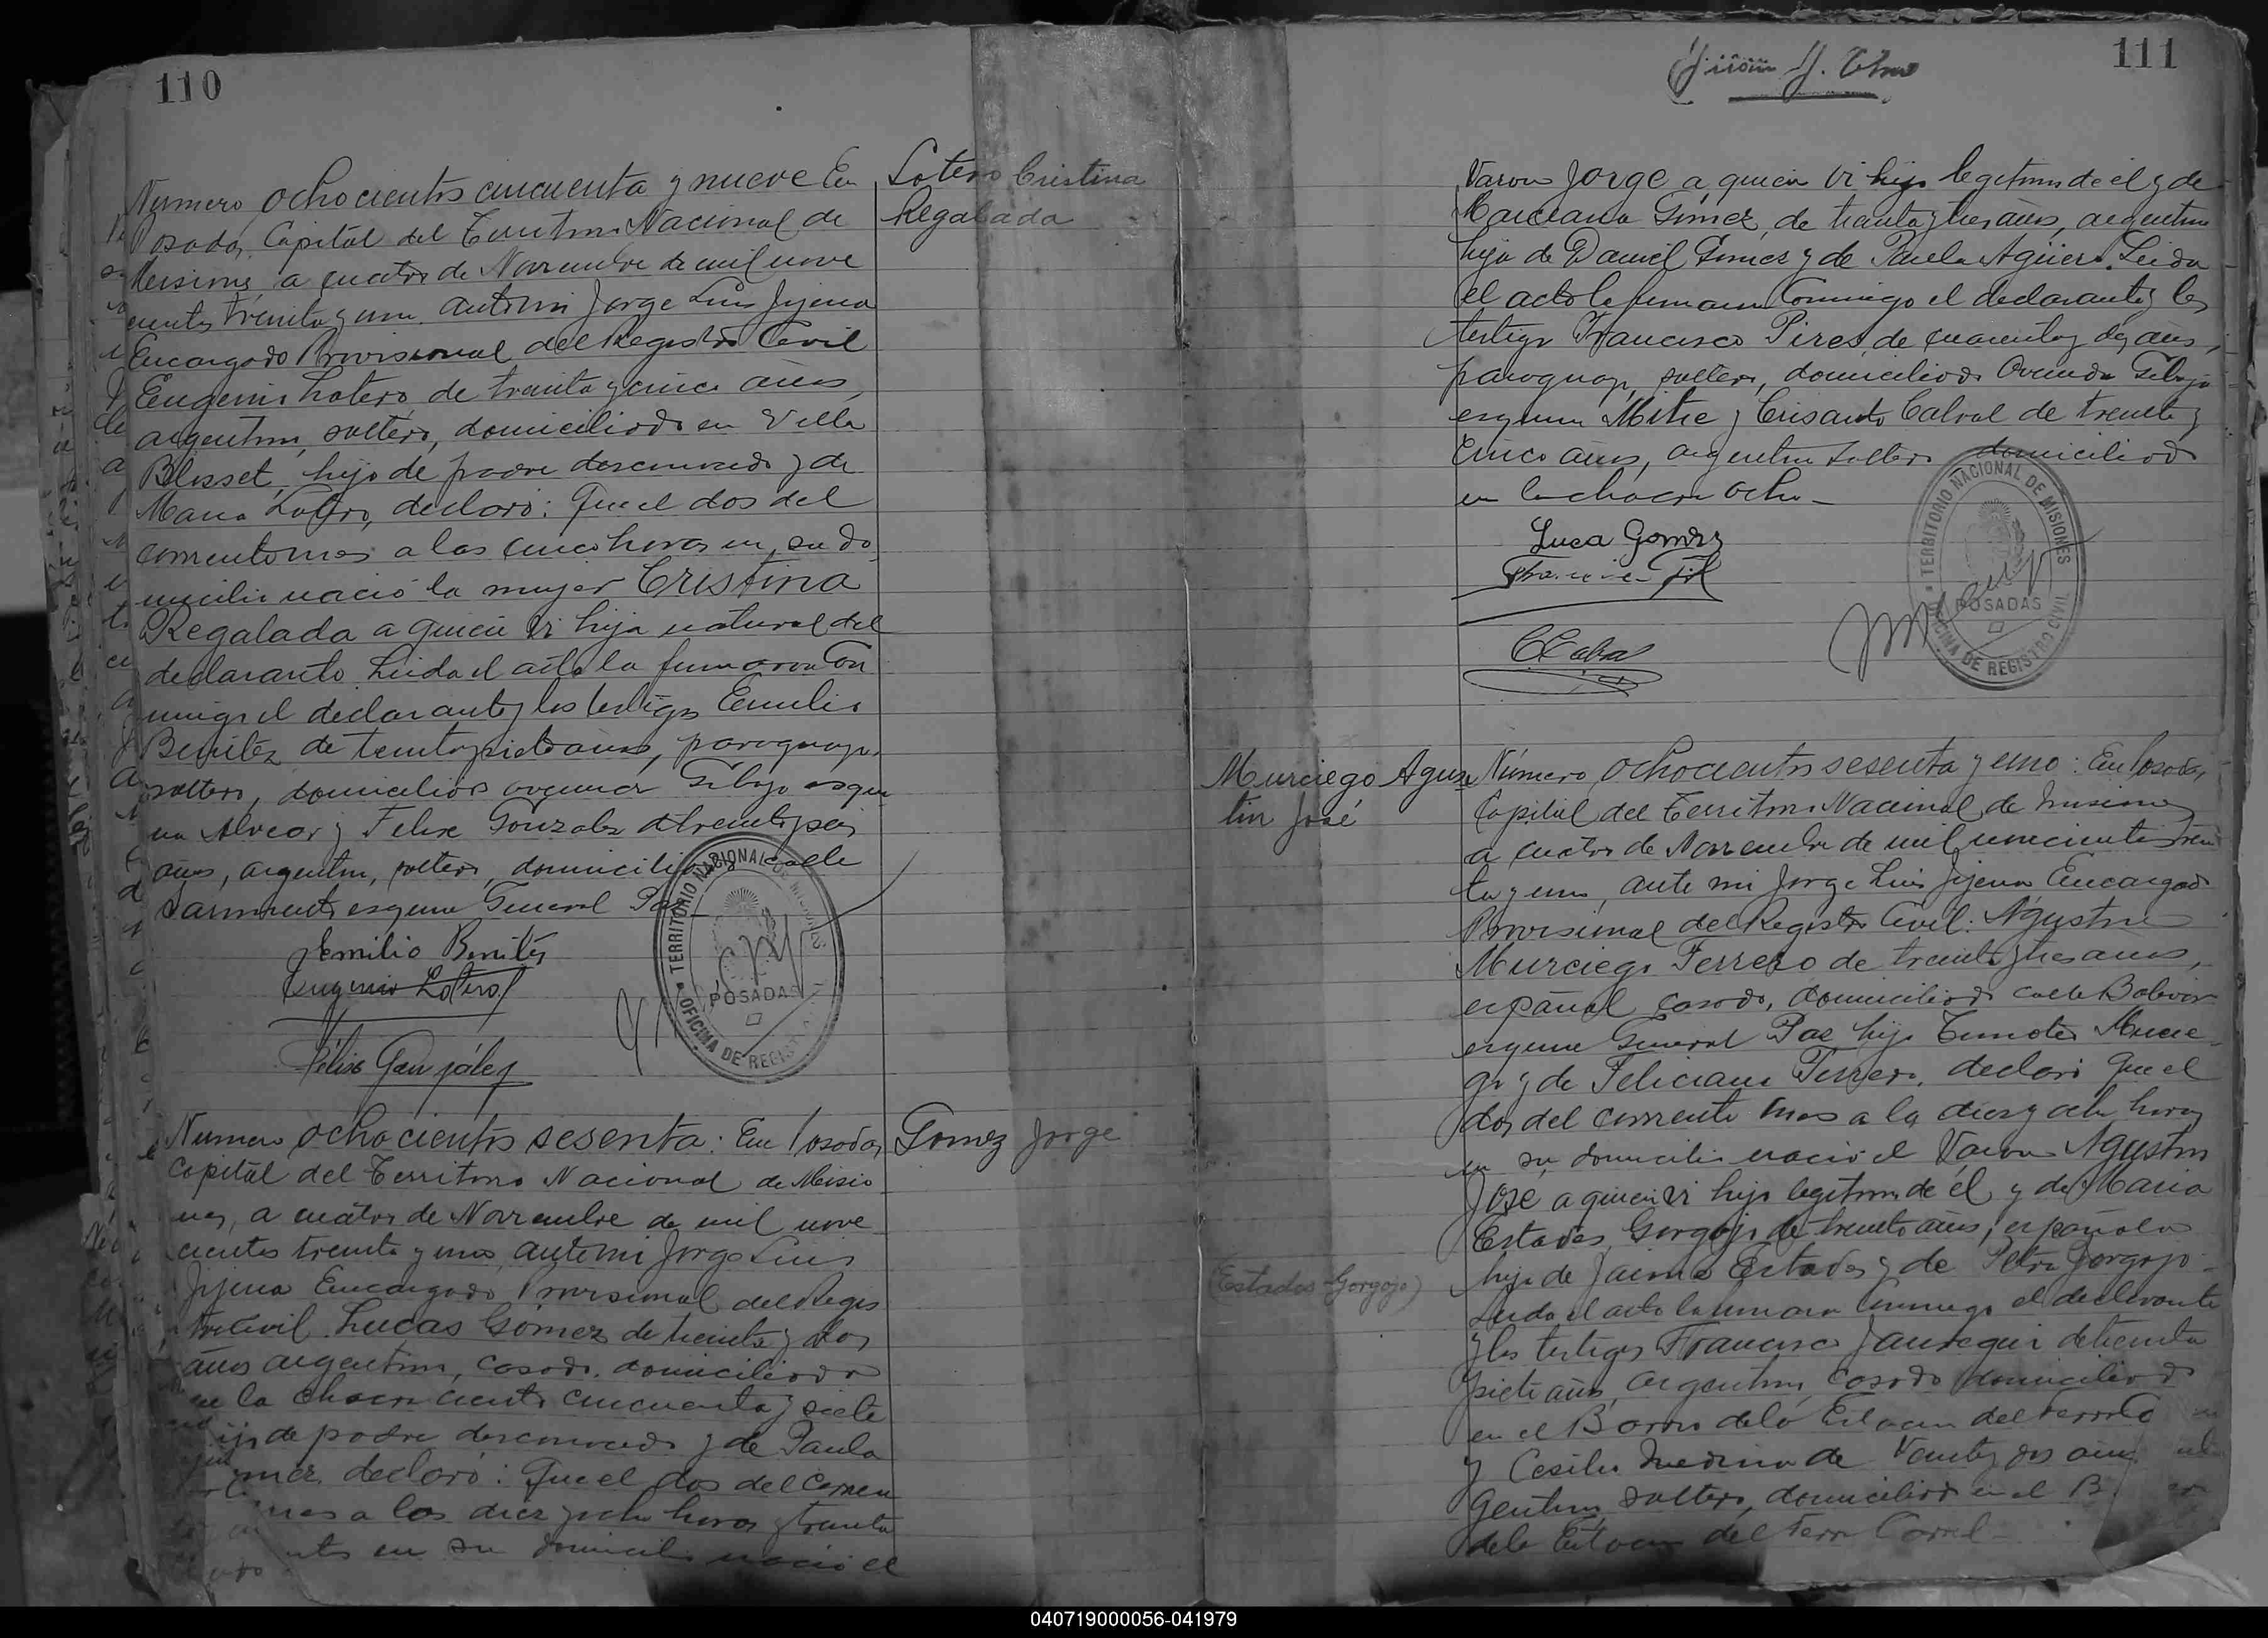 110
Número ochocientos cincuenta y nueve En
Posadas, Capital del Territorio Nacional de
Misiones, a cuatro de Noviembre de mil nove
cientos treinta y uno, ante mi Jorge Luis Jijena
Encargado Provisional del Registro Civil
Eugenio Lotero, de treinta y cinco años,
argentino, soltero, domiciliado en Villa
Blosset, hijo de padre desconocido y de
Maria Lotero, declaró: Que el dos del
corriente mes a las cinco horas en su do
micilio nació la mujer Cristina
Regalada a quien vi hija natural del
declarante. Leida el acta la firmaron Con
migo el declarante y los testigos Emilio
Benitez de treinta y siete años, paraguayo,
soltero, domiciliado avenida Tibajo esqui
na Alvear y Felix Gonzalez de treinta y seis
años, argentino, soltero, domiciliado calle
Sarmiento esquina General Paz
Lotero Cristina
Regalada
Emilio Benites
Eugenio Lotero
Félix González
TERRITORIO NACIONAL DE MISIONES
POSADAS
OFICINA DE REGISTRO CIVIL
Número ochocientos sesenta: En Posadas,
Capital del Territorio Nacional de Misio
nes, a cuatro de Noviembre de mil nove
cientos treinta y uno, ante mi Jorge Luis
Jijena Encargado Provisional del Regis
tro Civil. Lucas Gómez de treinta y dos
años argentino, casado, domiciliado
en la chacra ciento cincuenta y siete
hijo de padre desconocido y de Paula
declaró: Que el dos del corrien
mes a las diez y ocho horas y treinta
en su domicilio nació el
Gomez Jorge
111
Varon Jorge a quien vi hijo legitimo de él y de
Marciana Gómez, de treinta y tres años, argentina
hija de Daniel Gómez y de Paula Agüero. Leida
el acta la firmaron Conmigo el declarante y los
testigos Francisco Pires, de cuarenta y dos años,
paraguayo, soltero, domiciliado Avenida Tibajo
esquina Mitre y Crisanto Cabral de treinta y
cinco años, argentino soltero domiciliado
en la chacra ocho
Luca Gomez
CCabral
TERRITORIO NACIONAL DE MISIONES
POSADAS
OFICINA DE REGISTRO CIVIL
Murciego Agus
tin José
(Estados Gorgojo)
Número ochocientos sesenta y uno: En Posadas,
Capital del Territorio Nacional de Misiones
a cuatro de Noviembre de mil novecientos trein
ta y uno, ante mi Jorge Luis Jijena Encargado
Provisional del Registro Civil: Agustin
Murciego Ferrero de treinta y tres años,
español casado, domiciliado calle Bolivar
esquina General Paz hijo Timoteo Murcie
go y de Feliciana Ferrero, declaró Que el
dos del corriente mes a las diez y ocho horas
en su domicilio nació el Varon Agustin
José a quien vi hijo legitimo de él y de Maria
Estados Gorgojo de treinta años, española
hija de Jaime Estados y de Petra Gorgojo
Leida el acta la firmaron conmigo el declarante
y los testigos Francisco Jauregui de treinta
y siete años, argentino, casado domiciliado
en el Barrio de la Estacion del Ferro C
y Cesilio Medina de veinte y dos años
gentino, soltero, domiciliado en el B
de la Estacion del Ferro Carril
040719000056-041979